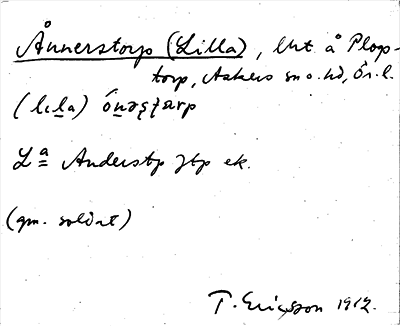 Ånnerstorp (Lilla), lht å Plogs-
torp, Askers sn o. hd, Ör. l.
(lɩla) ónəsta̧rp
Lª Anderstp Jtp ek.
(gm. soldat)
T. Ericsson 1912.